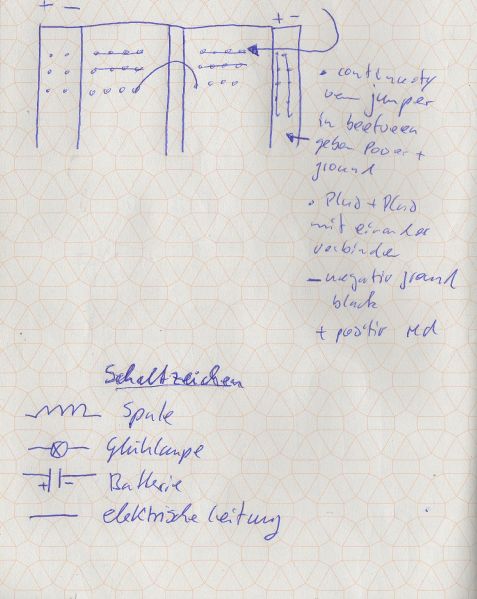 + -
+ -
• continuety
von jumper
in beetween
geben Power +
ground
• Plus + Plus
mit einander
verbinden
- negativ ground
black
+ positiv red
Schaltzeichen
Spule
Glühlampe
+ - Batterie
elektrische Leitung